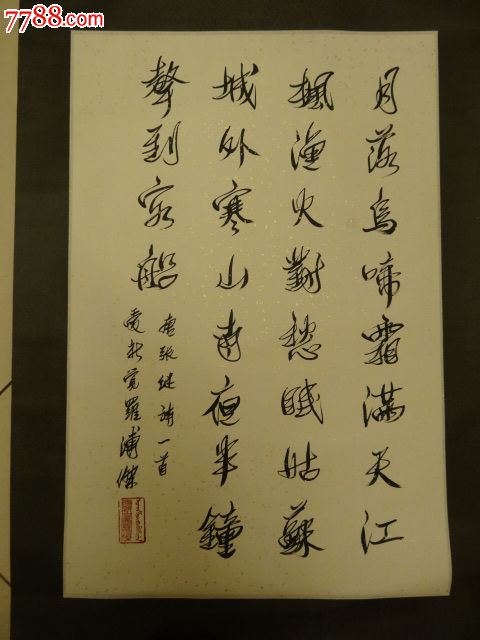 7788.com
月落烏啼霜滿天江
楓漁火對愁眠姑蘇
城外寒山寺夜半鐘
聲到客船
唐張继诗一首
愛新覺羅溥傑